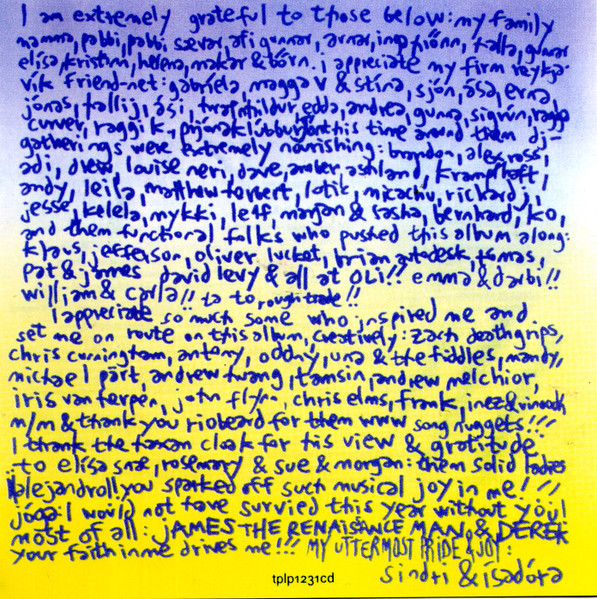 I am extremely grateful to those below: my family
mamma, pabbi, pabbi sævar, afi gunnar, arnar, inga hrönn, halla, gunnar
elísa, kristín, helena, makar & börn. i appreciate my firm reykja-
vík friend-net: gabríela, magga v & stína, sjón, ása, erna
jónas, tallij, ási, edda, andrea, gunna, sigrún, ragga
curver, raggi k., this time around them dj-
gatherings were extremely nourishing: brandon, alex ross,
adi, drew, louise neri, dave, amber, ashland, krampfhaft,
andy, leila, matthew herbert, lotic, micachu, rickard j,
jesse, kelela, mykki, le1f, marjan & sasha, bernhard, ko,
and them functional folks who pushed this album along:
klaus, jefferson, oliver, lucket, brian autodesk, tomas,
pat & james david levy & all at OLi!! emma & darbi!!
william & carla!! ta to, rough trade!!
I appreciate so much some who inspired me and
set me on route on this album, creatively: zach deathgrips,
chris cunningham, antony, oddny, una & the fiddles, mandy,
michael part, andrew twang, tamsin, andrew melchior,
iris van herpen, john flynn, chris elms, frank, inez & vinoodh
m/m & thank you riobeard for them www song nuggets!!!
I thank the faxan cloak for his view & gratitude
to elísa snæ, rosemary & sue & morgan: them solid ladies
alejandroll you sparked off such musical joy in me!!!
jóga: I would not have survied this year without you!
most of all: JAMES THE RENAISSANCE MAN & DEREK
your faith in me drives me!!! MY UTTERMOST PRIDE & JOY:
sindri & ísadóra
tplp1231cd